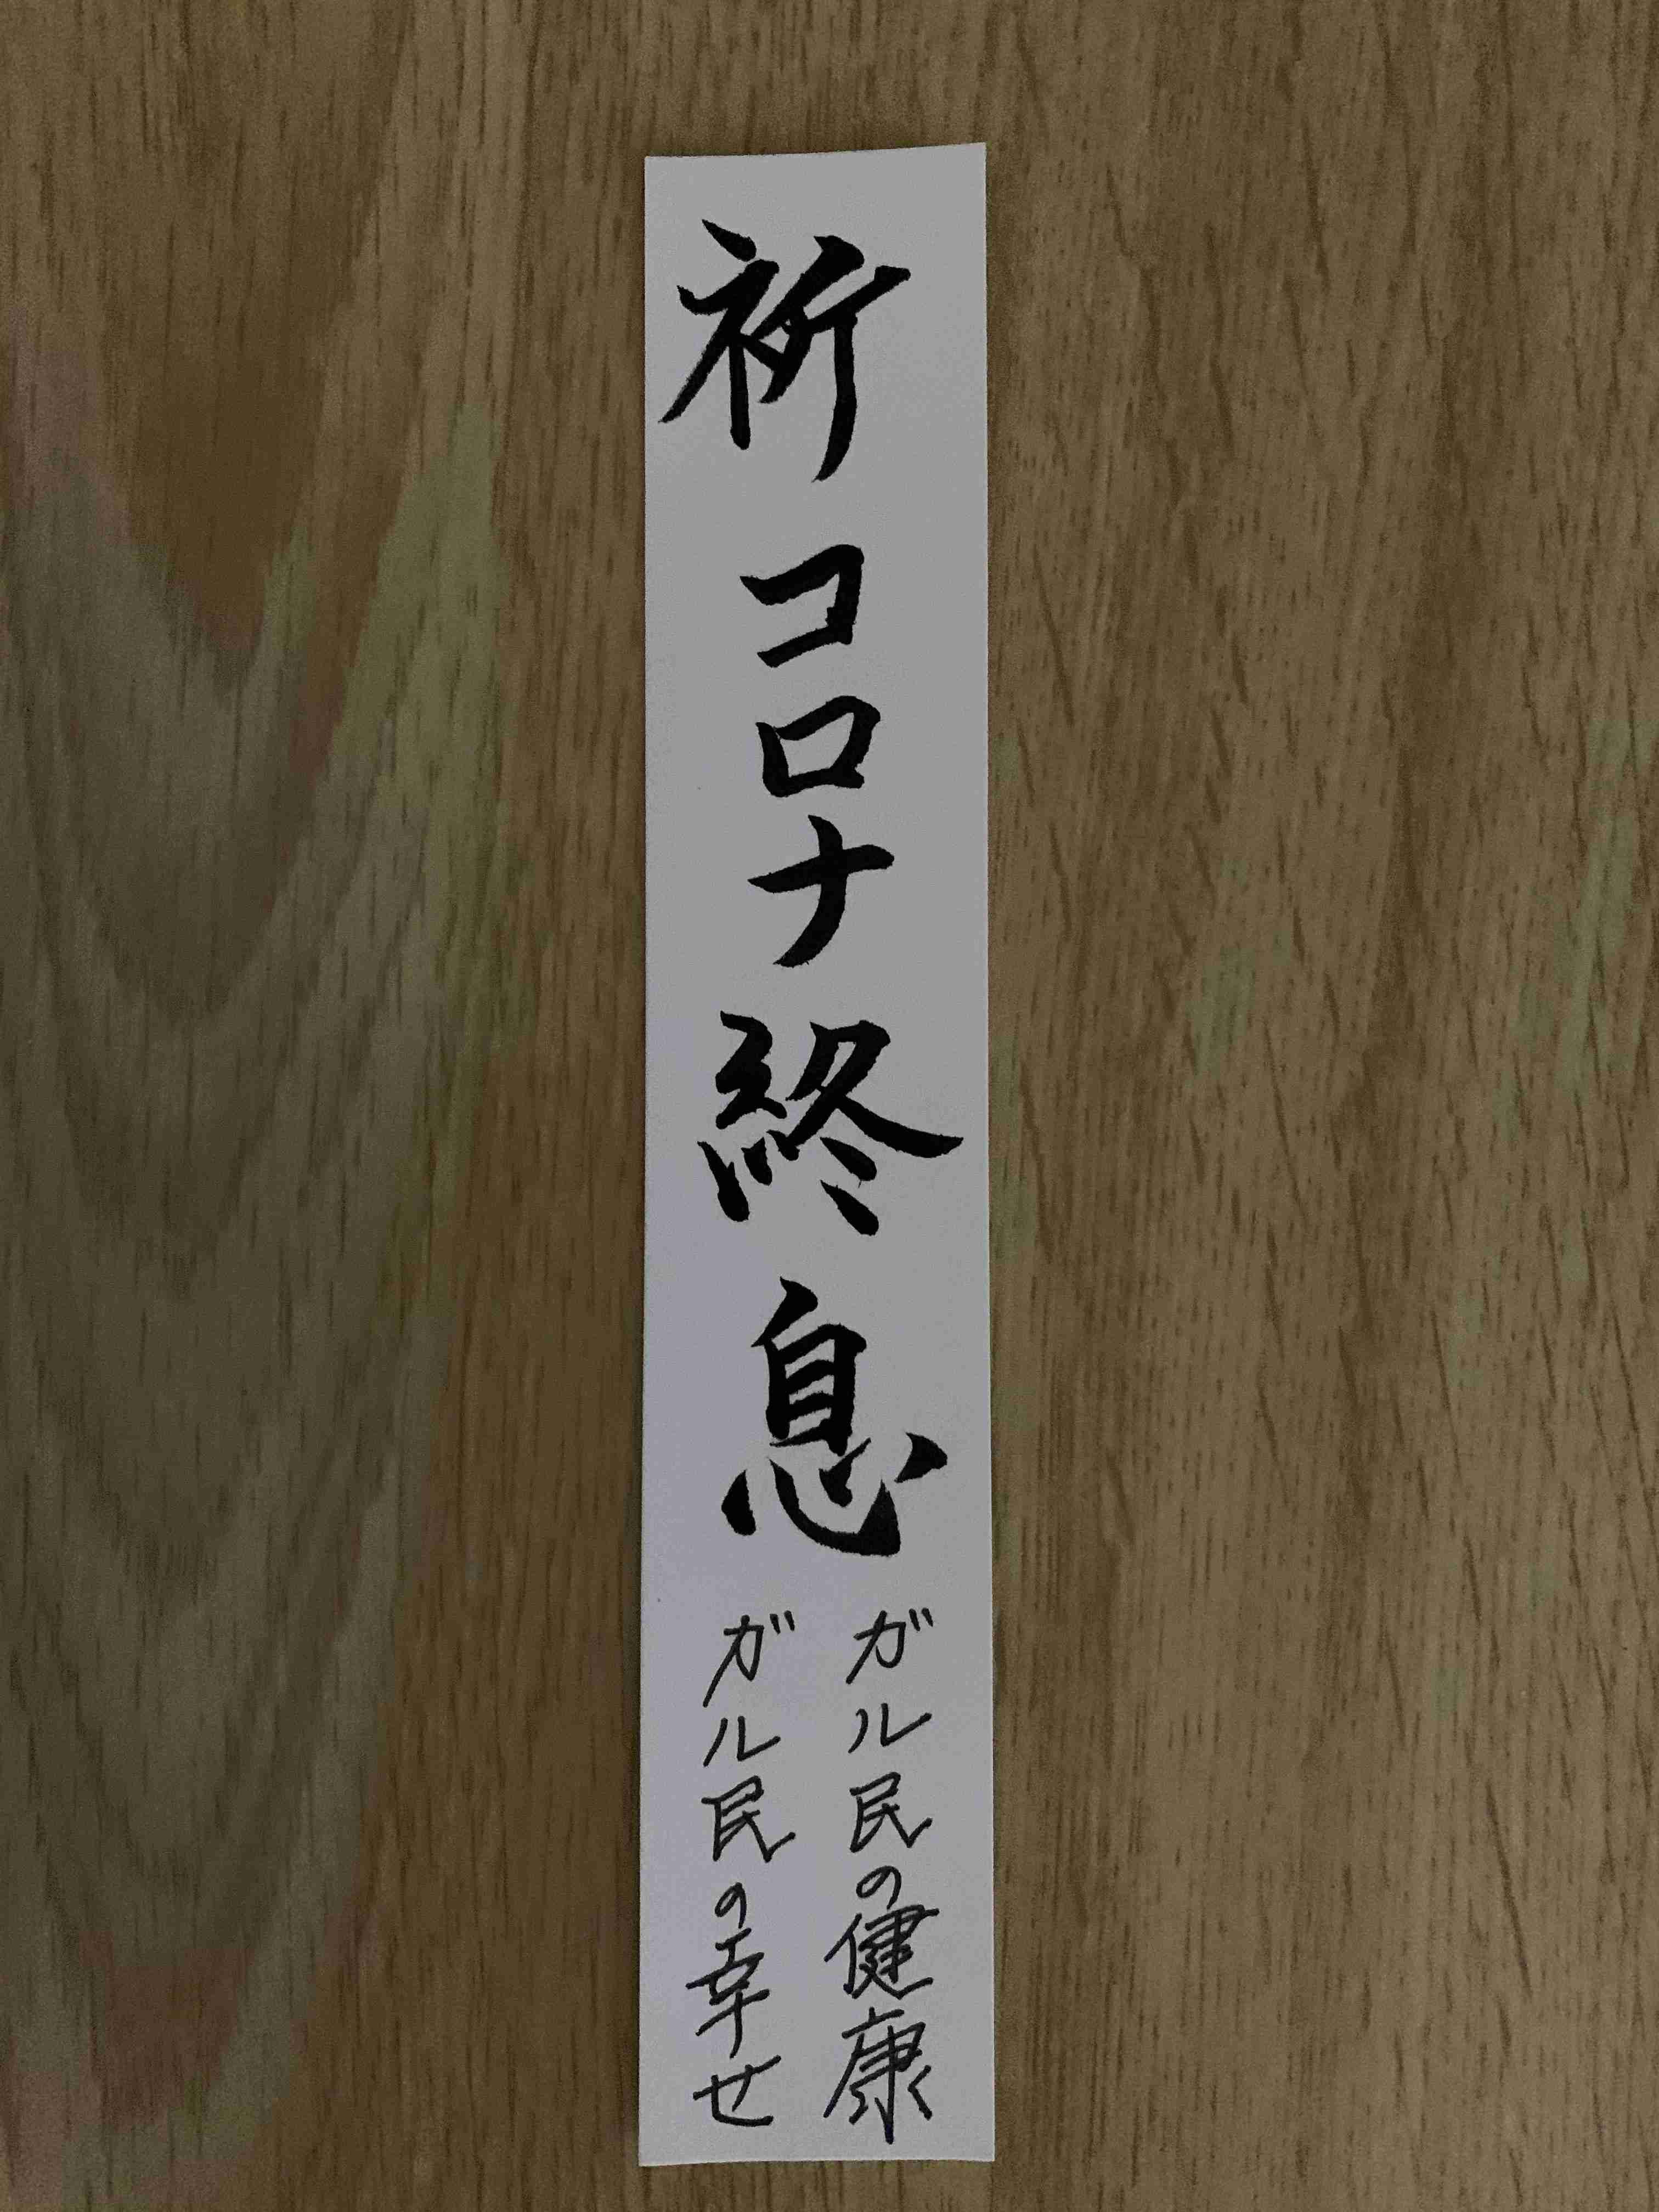 祈 コロナ終息
ガル民の健康
ガル民の幸せ